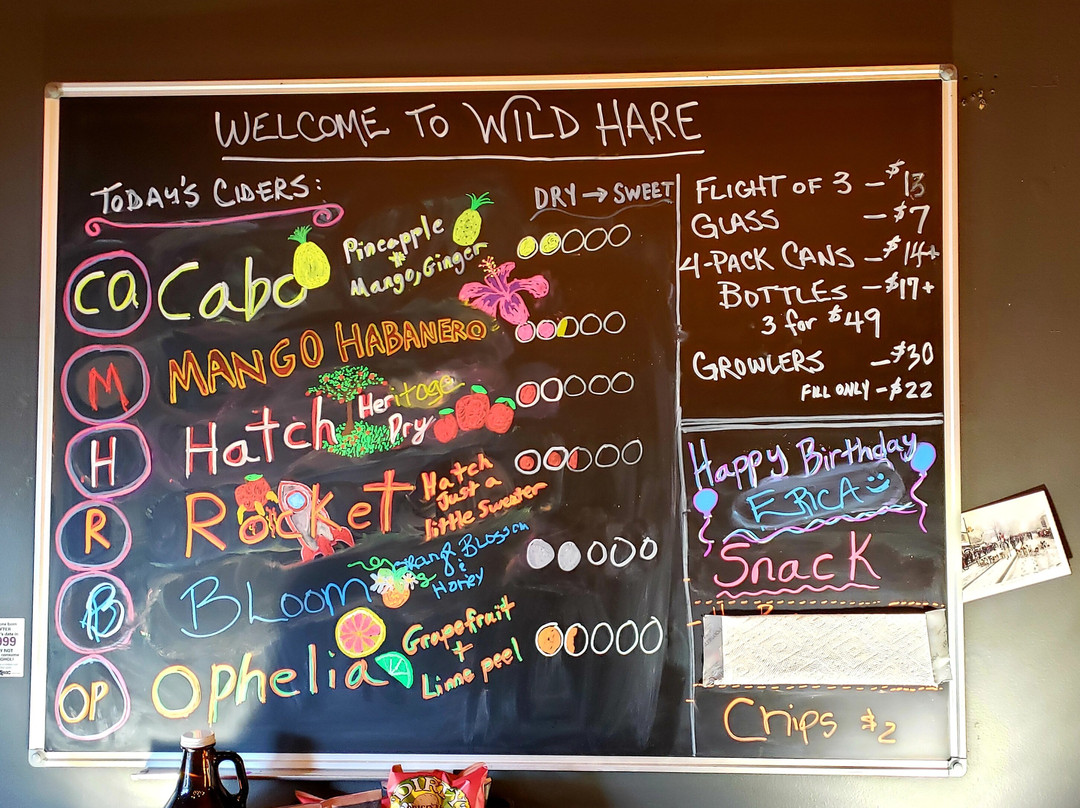 WELCOME TO WILD HARE
TODAY'S CIDERS:
DRY → SWEET
CA Cabo
Pineapple
+
Mango, Ginger
M MANGO HABANERO
H Hatch
Heritage
Dry
R Rocket
Hatch
Just a
little Sweeter
B BLOOM
Orange BLOSSOM
&
Honey
OP Ophelia
Grapefruit
+
Lime peel
FLIGHT OF 3 - $13
GLASS - $7
4-PACK CANS - $14+
BOTTLES - $17+
3 for $49
GROWLERS - $30
FILL ONLY - $22
Happy Birthday
ERICA
Snack
Chips $2
DIRTY